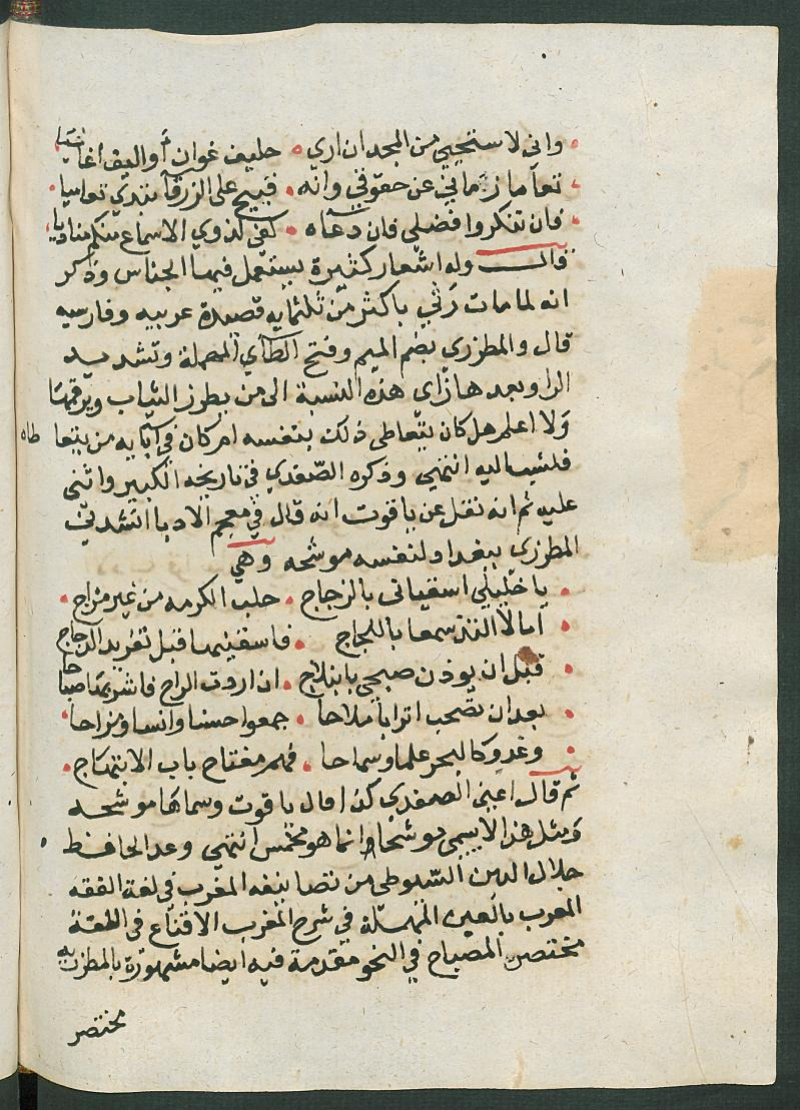 واني لاستحيي من المجد ان اري • حليف غوان أو اليف أغانيا
تعاما زماني عن حقوقي وانه • قبيح على الزرقا تبدي تعاميا •
فان تنكروا فضلي فان دعاه • كفى لذوي الاسماع منكم مناديا
قال وله اشعار كثيرة يستعمل فيها الجناس وذكر
انه لما مات رثي باكثر من ثلثمايه قصيدة عربيه وفارسيه
قال والمطرزي بضم الميم وفتح الطآي المهملة وتشديد
الرا وبعدها زاى هذه النسبة الى من يطرز الثياب ويرقمها
ولا اعلم هل كان يتعاطى ذلك بنفسه ام كان في آبايه من يتعا طاه
فنسب اليه انتهي وذكره الصفدي في تاريخه الكبير واثنى
عليه ثم انه نقل عن ياقوت انه قال في معجم الادبا انشدني
المطرزي ببغداد لنفسه موشحه وهي
• يا خليلي اسقياني بالزجاج • حلب الكرمه من غير مزاج •
• أنا لا التذ سمعا باللجاج • فاسقنيها قبل تغريد الدجاج
• قبل ان يوذن صبحي بابتلاج • ان اردت الراح فاشربها صباحا
• بعد ان تصحب اترابا ملاحا • جمعوا حسنا وانسا ومزاحا •
• وغدو كالبحر علما وسماحا • فهم مفتاح باب الابتهاج •
ثم قال اعني الصفدي كذا قال ياقوت وسماها موشحه
ومثل هذا لا يسمى موشحا وانما هو مخمس انتهي وعد الحافظ
جلال الدين السيوطي من تصانيفه المغرب في لغة الفقه
المعرب بالعين المهملة في شرح المغرب الاقناع في اللغة
مختصر المصباح في النحو مقدمة فيه ايضا مشهورة بالمطرزيه
مختصر